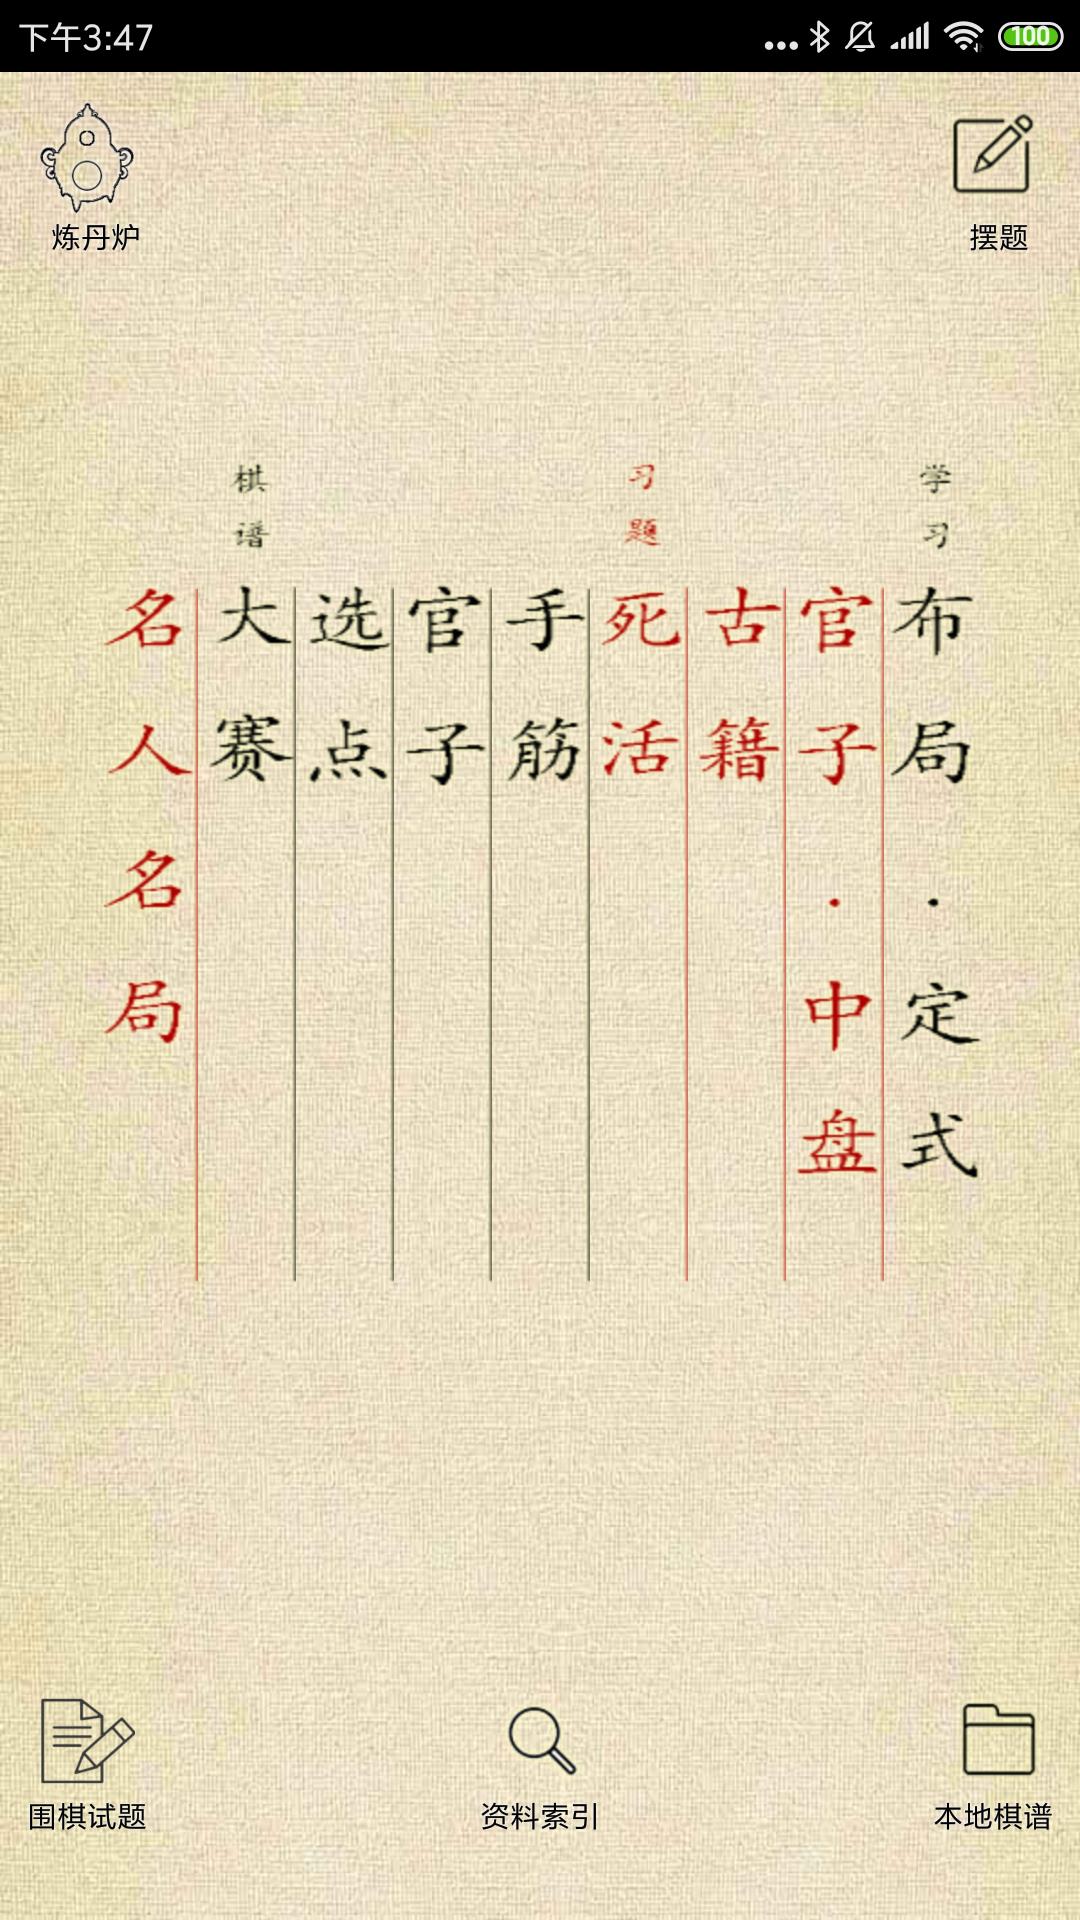 下午3:47
100
炼丹炉
摆题
学习
布局·定式
官子·中盘
习题
古籍
死活
手筋
官子
选点
棋谱
大赛
名人名局
围棋试题
资料索引
本地棋谱